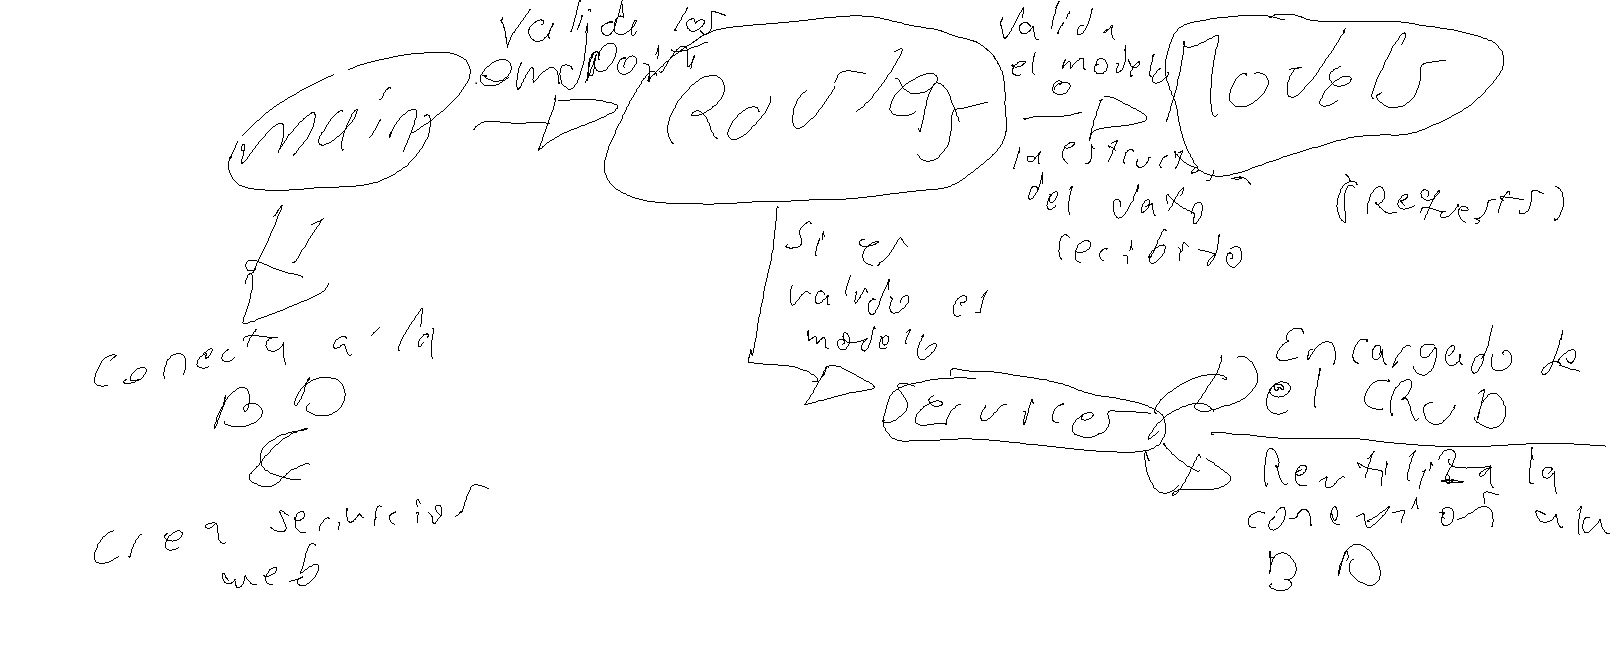 main
Valide los
endpoint
Router
Valida
el modelo
o
la estructura
del dato
recibido
Models
(Requests)
Conecta a la
BD
&
Crea servicios
web
Si es
valido el
modelo
Services
Encargado de
el CRUD
Reutiliza la
conexion a la
BD